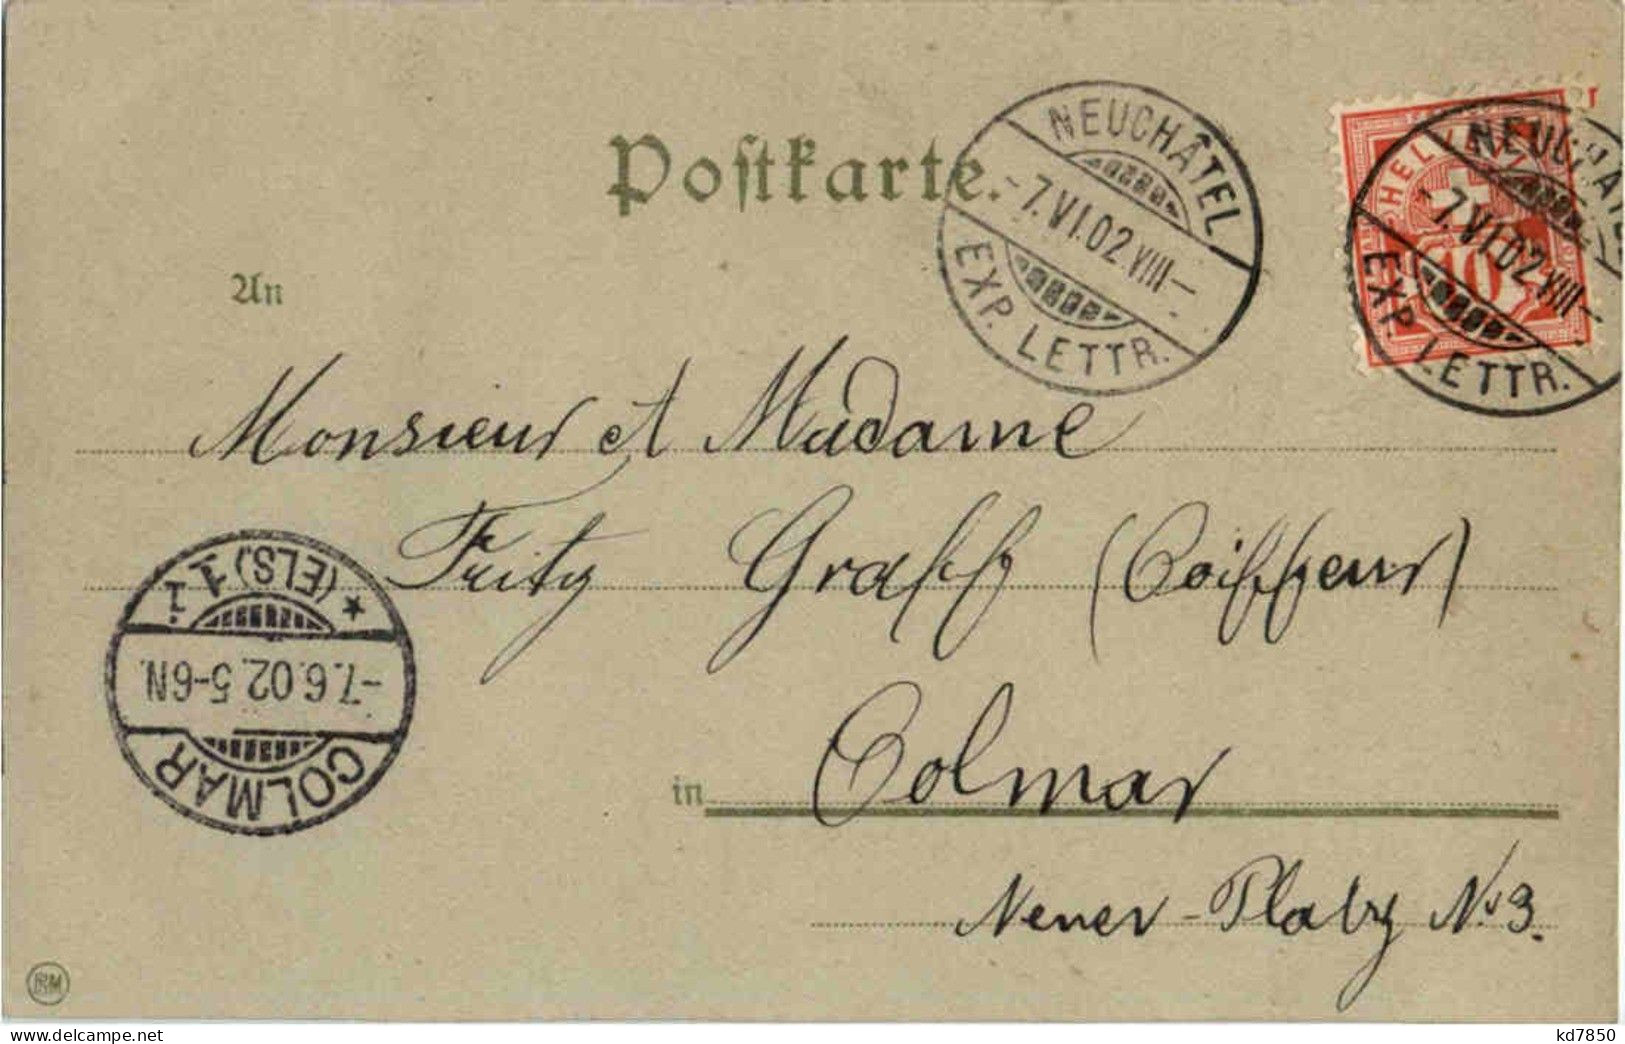 Postkarte.
NEUCHÂTEL
-7.VI.02.VIII-
EXP. LETTR.
NEUCHÂTEL
-7.VI.02.VIII-
EXP. LETTR.
HELVETIA
10
An
Monsieur et Madame
Fritz Graff (Coiffeur)
in Colmar
Neuer-Platz No 3.
COLMAR
-7.6.02.5-6N.
* (ELS.) 1 i
www.delcampe.net
kd7850